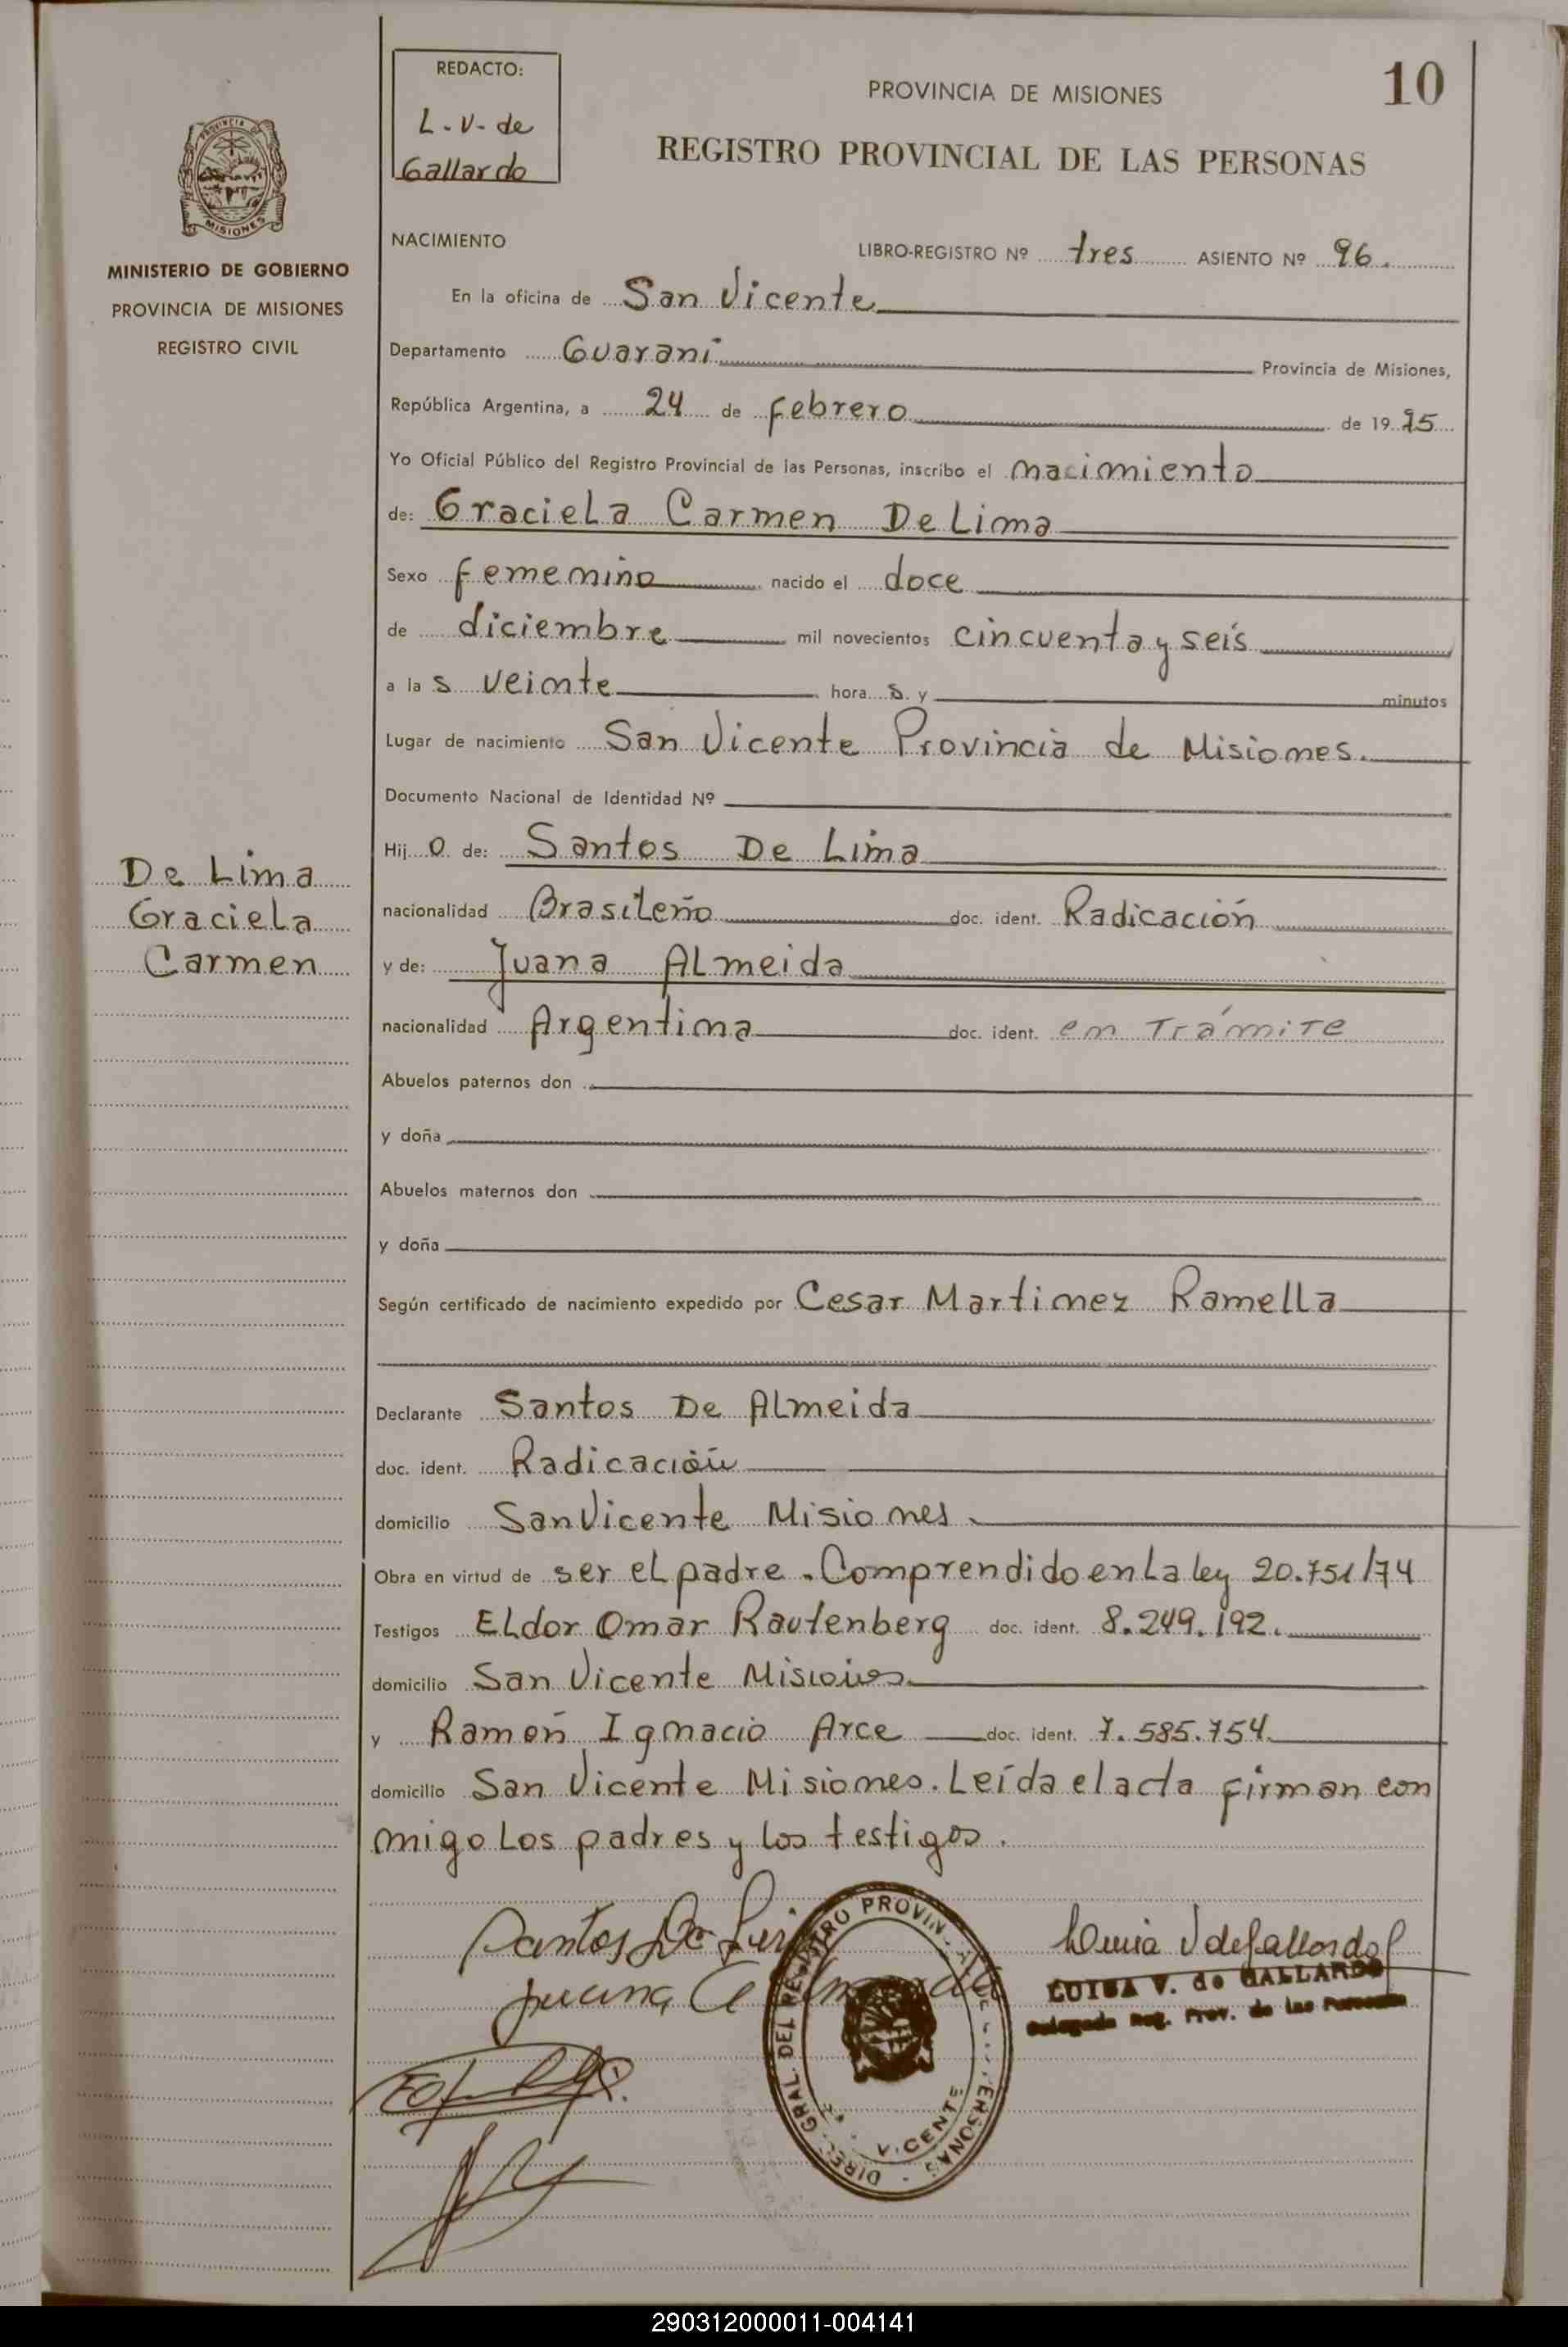 REDACTO:
L. V. de
Gallardo
10
PROVINCIA DE MISIONES
REGISTRO PROVINCIAL DE LAS PERSONAS
PROVINCIA DE
MISIONES
MINISTERIO DE GOBIERNO
PROVINCIA DE MISIONES
REGISTRO CIVIL
NACIMIENTO
LIBRO-REGISTRO Nº tres ASIENTO Nº 96.
En la oficina de San Vicente
Departamento Guaraní Provincia de Misiones,
República Argentina, a 24 de febrero de 19 75
Yo Oficial Público del Registro Provincial de las Personas, inscribo el nacimiento
de: Graciela Carmen De Lima
Sexo femenino nacido el doce
de diciembre mil novecientos cincuenta y seis
a la s veinte hora s y minutos
Lugar de nacimiento San Vicente Provincia de Misiones.
Documento Nacional de Identidad Nº
Hij o de: Santos De Lima
De Lima
Graciela
Carmen
nacionalidad Brasileño doc. ident. Radicación
y de: Juana Almeida
nacionalidad Argentina doc. ident. en Trámite
Abuelos paternos don
y doña
Abuelos maternos don
y doña
Según certificado de nacimiento expedido por Cesar Martinez Ramella
Declarante Santos De Almeida
doc. ident. Radicación
domicilio San Vicente Misiones.
Obra en virtud de ser el padre. Comprendido en la ley 20.751/74
Testigos Eldor Omar Rautenberg doc. ident. 8.249.192.
domicilio San Vicente Misiones.
y Ramón Ignacio Arce doc. ident. 7.585.754.
domicilio San Vicente Misiones. Leída el acta firman con
migo los padres y los testigos.
Santos De
Juana
LUISA V. de GALLARDO
Delegada Reg. Prov. de las Personas
DIREC. GRAL. DEL REGISTRO PROVINCIAL DE LAS PERSONAS
VICENTE
290312000011-004141